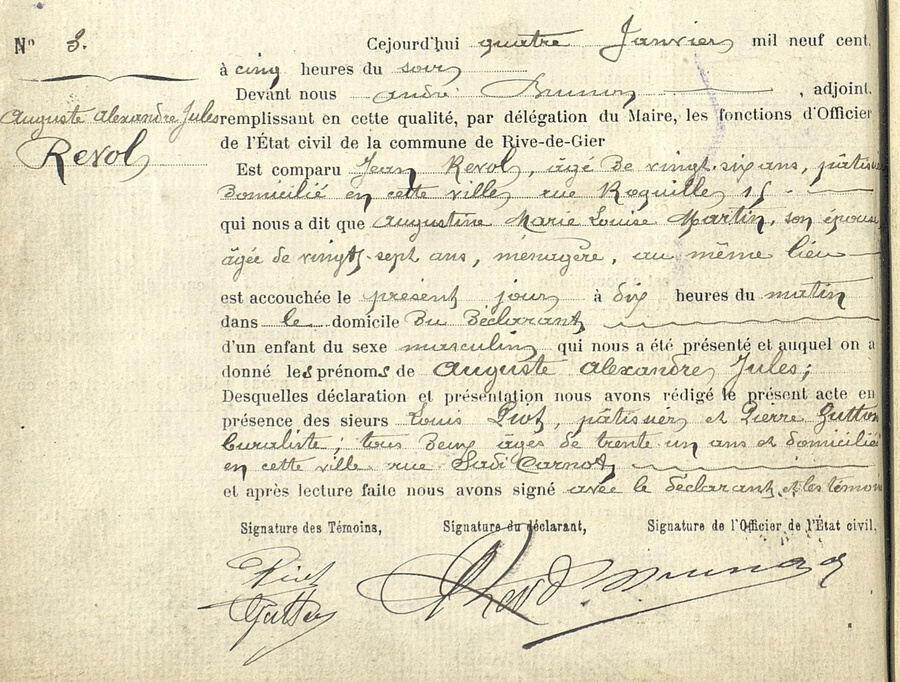 N° 3.
Auguste Alexandre Jules
Revol
Cejourd'hui quatre Janvier mil neuf cent,
à cinq heures du soir
Devant nous André Brunon, adjoint,
remplissant en cette qualité, par délégation du Maire, les fonctions d'Officier
de l'État civil de la commune de Rive-de-Gier
Est comparu Jean Revol, âgé de vingt-six ans, pâtis
domicilié en cette ville, rue Roquille, 15
qui nous a dit que Augustine Marie Louise Martin, son épouse,
âgée de vingt-sept ans, ménagère, au même lieu
est accouchée le présent jour à dix heures du matin
dans le domicile du déclarant
d'un enfant du sexe masculin qui nous a été présenté et auquel on a
donné les prénoms de Auguste Alexandre Jules;
Desquelles déclaration et présentation nous avons rédigé le présent acte en
présence des sieurs Louis Piot, pâtissier et Pierre Gutton
buraliste; tous deux âgés de trente-un ans et domiciliés
en cette ville rue Sadi Carnot
et après lecture faite nous avons signé avec le déclarant et les témoin
Signature des Témoins, Signature du déclarant, Signature de l'Officier de l'État civil,
Piot
Gutton
Revol
Brunon